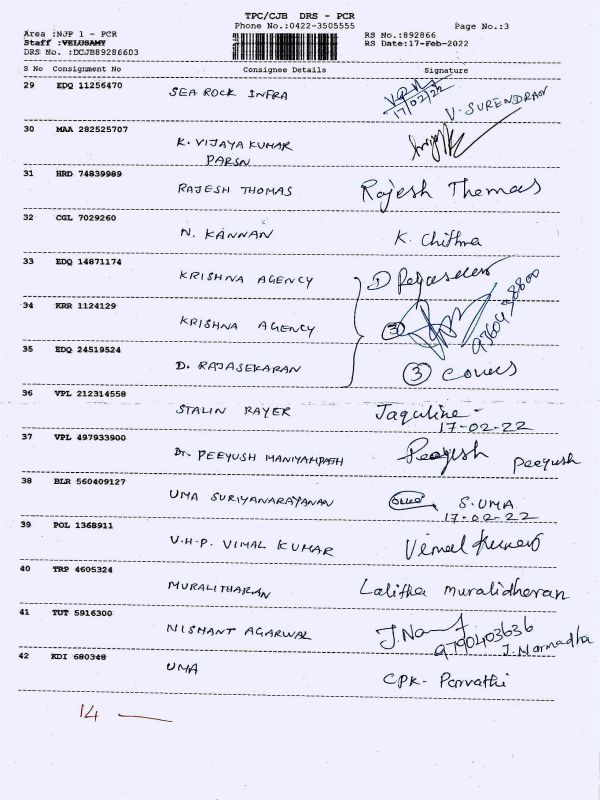 TPC/CJB DRS - PCR
Phone No.:0422-3505555 Page No.:3
Area :NJP 1 - PCR RS No.:892866
Staff :VELUSAMY RS Date:17-Feb-2022
DRS No. :DCJB89286603
S No Consignment No Consignee Details Signature
29 EDQ 11256470 SEA ROCK INFRA 17/02/22 V. SURENDRAN
30 MAA 282525707 K. VIJAYA KUMAR
PARSN
31 HRD 74839989 RAJESH THOMAS Rajesh Thomas
32 CGL 7029260 N. KANNAN K. Chithra
33 EDQ 14871174 KRISHNA AGENCY
34 KRR 1124129 KRISHNA AGENCY 3
35 EDQ 24519524 D. RAJASEKARAN 3 covers
36 VPL 212314558 STALIN RAYER Jaquline
17-02-22
37 VPL 497933900 Dr. PEEYUSH MANIYAMPATH Peeyush Peeyush
38 BLR 560409127 UMA SURIYANARAYANAN S. UMA
17-02-22
39 POL 1368911 V.H.P. VIMAL KUMAR Vimal Kumar
40 TRP 4605324 MURALITHARAN Lalitha muralidharan
41 TUT 5916300 NISHANT AGARWAL J. Na
9790403636
J. Narmadha
42 KDI 680348 UMA CPK- Parvathi
14